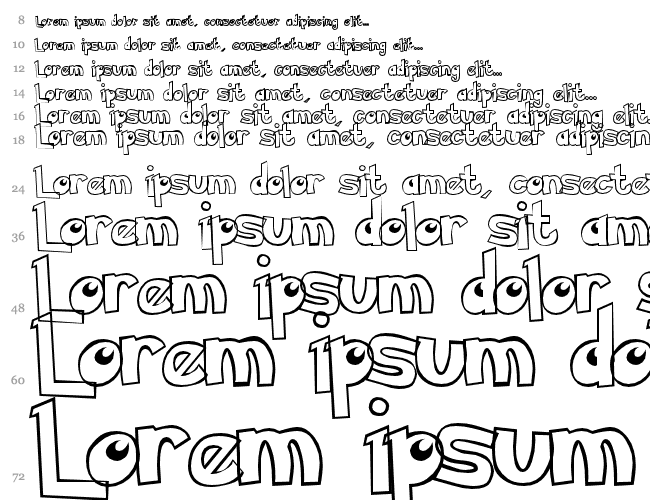 8 Lorem ipsum dolor sit amet, consectetuer adipiscing elit...
10 Lorem ipsum dolor sit amet, consectetuer adipiscing elit...
12 Lorem ipsum dolor sit amet, consectetuer adipiscing elit...
14 Lorem ipsum dolor sit amet, consectetuer adipiscing elit...
16 Lorem ipsum dolor sit amet, consectetuer adipiscing elit.
18 Lorem ipsum dolor sit amet, consectetuer adipiscin
24 Lorem ipsum dolor sit amet, consecte
36 Lorem ipsum dolor sit am
48 Lorem ipsum dolor s
60 Lorem ipsum do
72 Lorem ipsum